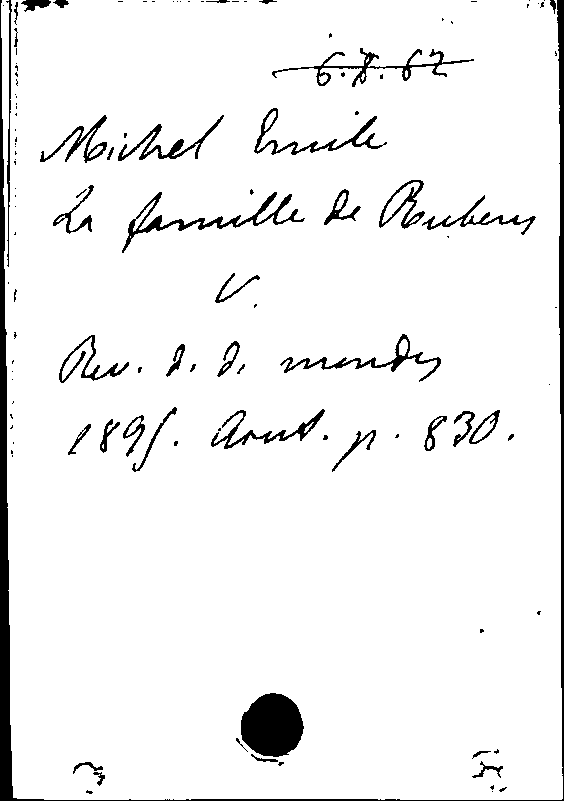 6.X.62
Michel Emile
La famille de Rubens
V.
Rev. d. d. mondes
1895. Aout. p. 830.